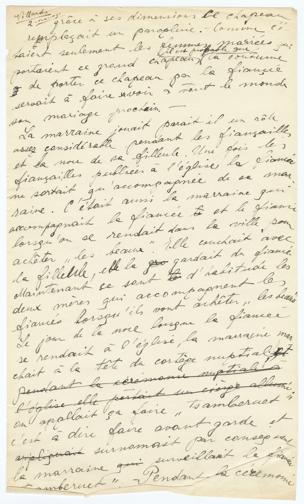 grâce à ses dimensions ce chapeau
remplaçait un parasol. Comme c'é
taient seulement les mariées qui
portaient ce grand chapeau, la coutume
de porter ce chapeau par la fiancée
servait à faire savoir à tout le monde
son mariage prochain —
La marraine jouait parait il un rôle
assez considérable pendant les fiançailles
et la noce de sa filleule. Une fois les
fiançailles publiées à l'église la fiancée
ne sortait qu'accompagnée de sa mar
raine. C'était aussi la marraine qui
accompagnait la fiancée et le fiancé
lorsqu'on se rendait dans la ville pour
acheter „les beaux". Elle couchait avec
la filleule, elle la gardait du fiancé.
Maintenant ce sont d'habitude les
deux mères qui accompagnent les
fiancés lorsqu'ils vont acheter „les beaux"
Le jour de la noce lorsque la fiancée
se rendait à l'église, la marraine mar
chait à la tête du cortège nuptial
pendant la cérémonie nuptiale
l'église elle portait un cierge allumé
on appellait ça faire
c'est à dire faire avant garde et
surnomait par conséquent
la marraine qui surveillait la fiancée
Pendant la cérémonie